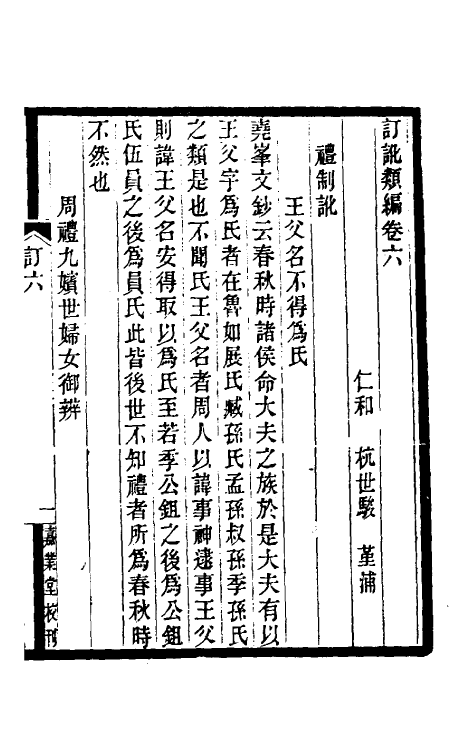 訂訛類編卷六
仁和 杭世駿 堇浦
禮制訛
王父名不得爲氏
堯峯文鈔云春秋時諸侯命大夫之族於是大夫有以
王父字爲氏者在魯如展氏臧孫氏孟孫叔孫季孫氏
之類是也不聞氏王父名者周人以諱事神逮事王父
則諱王父名安得取以爲氏至若季公鉏之後爲公鉏
氏伍員之後爲員氏此皆後世不知禮者所爲春秋時
不然也
周禮九嬪世婦女御辨
訂六
一
嘉業堂校刊